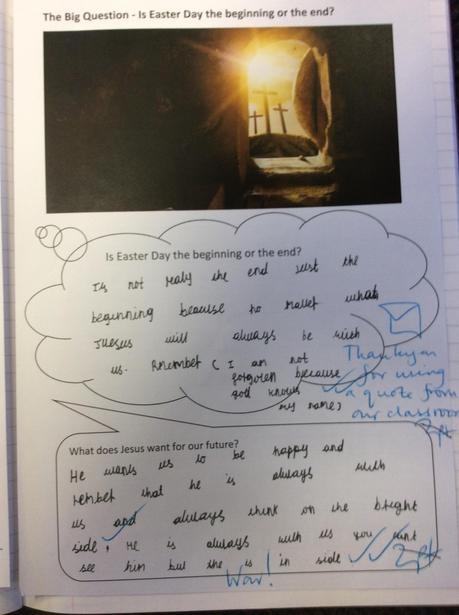 The Big Question - Is Easter Day the beginning or the end?
Is Easter Day the beginning or the end?
Its not realy the end just the
beginning beacuse no matter what
Juesus will always be with
us. Rmember ( I am not
forgoten because
god knows
my name)
Thankyou
for using
a quote from
our classroom
What does Jesus want for our future?
He wants us to be happy and
rember that he is always with
us and always think on the bright
side, He is always with us you
see him but the is in side
Wow!